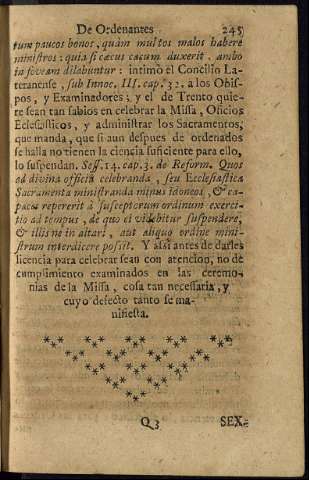 De Ordenantes. 245
tum paucos bonos, quàm multos malos habere
ministros: quia si cæcus cæcum duxerit, ambo
in foveam dilabuntur: intimò el Concilio La-
teranense, sub Innoc. III. cap. 32. a los Obis-
pos, y Examinadores; y el de Trento quie-
re sean tan sabios en celebrar la Missa, Oficios
Eclesiasticos, y administrar los Sacramentos,
que manda, que si aun despues de ordenados
se halla no tienen la ciencia suficiente para ello,
lo suspendan. Sess. 14. cap. 3. de Reform. Quos
ad divina officia celebranda, seu Ecclesiastica
Sacramenta ministranda minus idoneos, & ca-
paces repererit à susceptorum ordinum exerci-
tio ad tempus, de quo ei videbitur suspendere,
& illis ne in altari, aut aliquo ordine mini-
strum interdicere possit. Y assi antes de darles
licencia para celebrar sean con atencion, no de
cumplimiento examinados en las ceremo-
nias de la Missa, cosa tan necessaria, y
cuyo defecto tanto se ma-
nifiesta.
Q3 SEX-